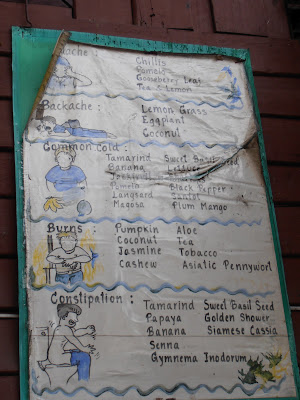 ache :
Chillis
Pomelo
Gooseberry Leaf
Tea & Lemon
Backache :
Lemon Grass
Eggplant
Coconut
Common Cold :
Tamarind Sweet Basil Seed
Banana
Pomelo Black Pepper
Langsard Santol
Magosa Plum Mango
Burns :
Pumpkin Aloe
Coconut Tea
Jasmine Tobacco
Cashew Asiatic Pennywort
Constipation :
Tamarind Sweet Basil Seed
Papaya Golden Shower
Banana Siamese Cassia
Senna
Gymnema Inodorum